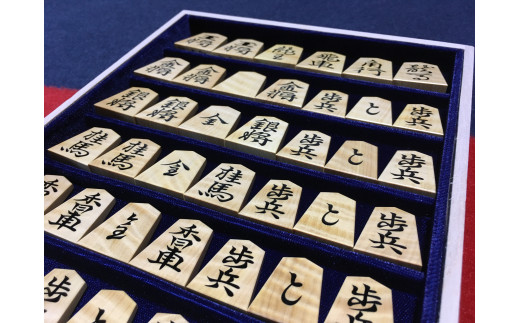 王将 玉将 龍王 飛車 角行
金将 金将 金将 歩兵 と 歩兵
銀将 銀将 金 銀将 歩兵 と 歩兵
桂馬 桂馬 金 桂馬 歩兵 と 歩兵
香車 香車 全 香車 歩兵 と 歩兵
歩兵 と